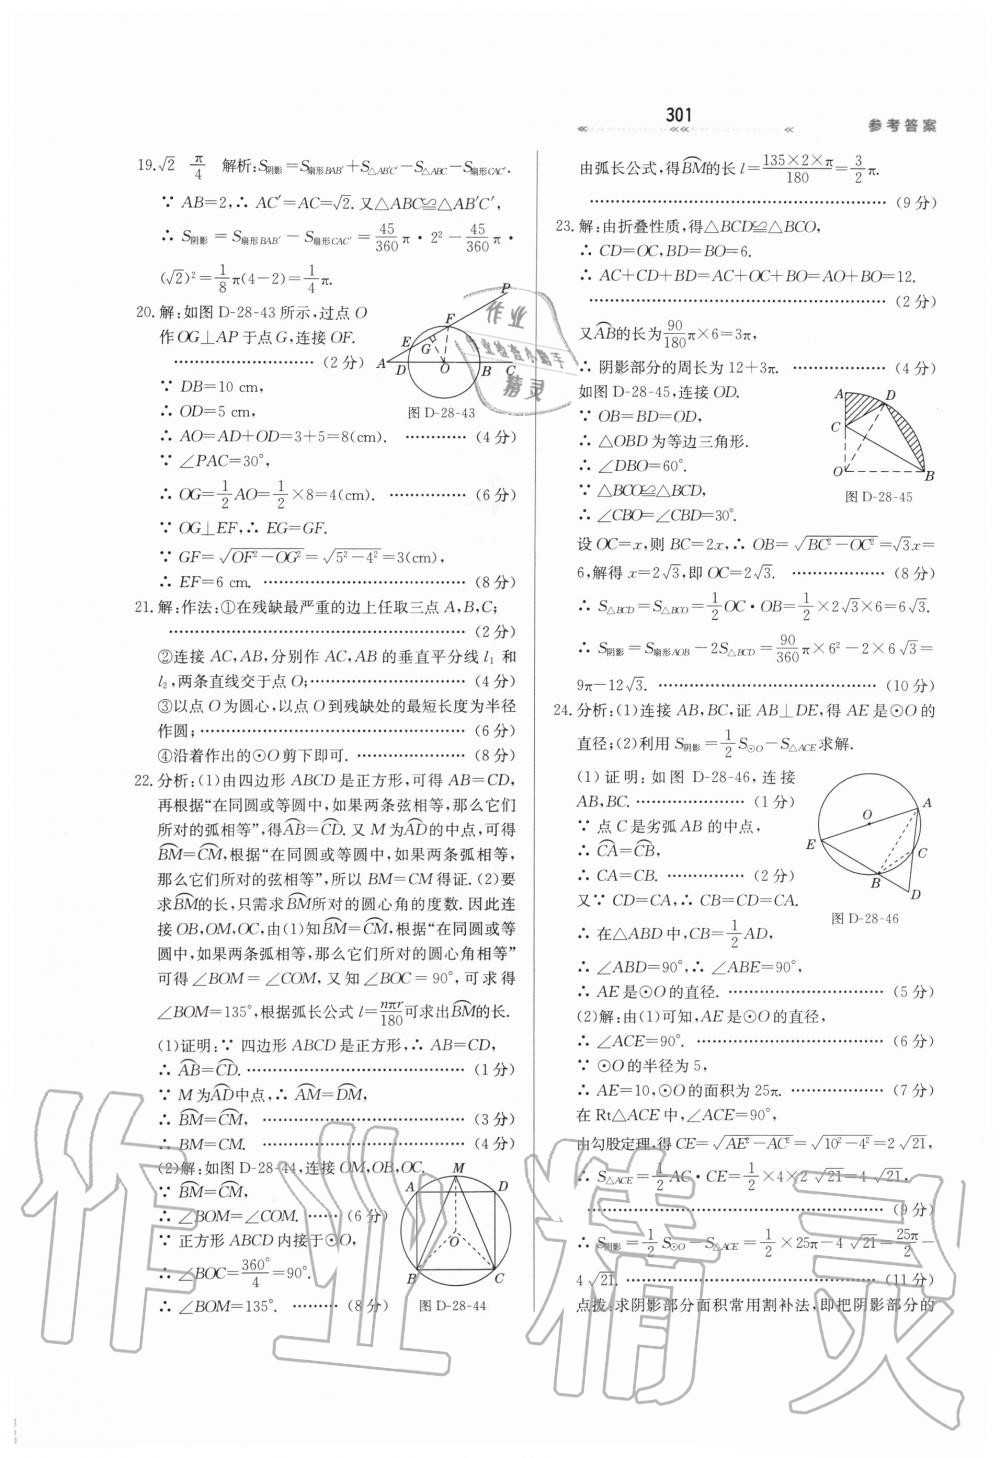 301
参考答案
19.√2 π/4 解析:S阴影=S扇形BAB′+S△AB′C′-S△ABC-S扇形CAC′.
∵ AB=2,∴ AC′=AC=√2. 又△ABC≌△AB′C′,
∴ S阴影=S扇形BAB′-S扇形CAC′=45/360π·2²-45/360π·
(√2)²=1/8π(4-2)=1/4π.
20.解:如图 D-28-43 所示,过点 O
作 OG⊥AP 于点 G,连接 OF.
……………………(2 分)
∵ DB=10 cm,
∴ OD=5 cm,
∴ AO=AD+OD=3+5=8(cm). …………(4 分)
∵ ∠PAC=30°,
∴ OG=1/2AO=1/2×8=4(cm). ……………(6 分)
∵ OG⊥EF,∴ EG=GF.
∵ GF=√(OF²-OG²)=√(5²-4²)=3(cm),
∴ EF=6 cm. ………………………………(8 分)
P
F
E
G
A
D
O
B
C
图 D-28-43
21.解:作法:①在残缺最严重的边上任取三点 A,B,C;
………………………………………………(2 分)
②连接 AC,AB,分别作 AC,AB 的垂直平分线 l₁ 和
l₂,两条直线交于点 O;………………………(4 分)
③以点 O 为圆心,以点 O 到残缺处的最短长度为半径
作圆;…………………………………………(6 分)
④沿着作出的⊙O 剪下即可. ………………(8 分)
22.分析:(1)由四边形 ABCD 是正方形,可得 AB=CD,
再根据“在同圆或等圆中,如果两条弦相等,那么它们
所对的弧相等”,得⌒AB=⌒CD. 又 M 为⌒AD的中点,可得
⌒BM=⌒CM,根据“在同圆或等圆中,如果两条弧相等,
那么它们所对的弦相等”,所以 BM=CM 得证. (2)要
求⌒BM的长,只需求⌒BM所对的圆心角的度数. 因此连
接 OB,OM,OC,由(1)知⌒BM=⌒CM,根据“在同圆或等
圆中,如果两条弧相等,那么它们所对的圆心角相等”
可得∠BOM=∠COM,又知∠BOC=90°,可求得
∠BOM=135°,根据弧长公式 l=nπr/180可求出⌒BM的长.
(1)证明:∵ 四边形 ABCD 是正方形,∴ AB=CD,
∴ ⌒AB=⌒CD. …………………………………(1 分)
∵ M 为⌒AD中点,∴ ⌒AM=⌒DM,
∴ ⌒BM=⌒CM, …………………………………(3 分)
∴ BM=CM. …………………………………(4 分)
(2)解:如图 D-28-44,连接 OM,OB,OC.
∵ ⌒BM=⌒CM,
∴ ∠BOM=∠COM. ……(6 分)
∵ 正方形 ABCD 内接于⊙O,
∴ ∠BOC=360°/4=90°.
∴ ∠BOM=135°. ………(8 分)
M
A
D
O
B
C
图 D-28-44
由弧长公式,得⌒BM的长 l=135×2×π/180=3/2π.
………………………………………………(9 分)
23.解:由折叠性质,得△BCD≌△BCO,
∴ CD=OC,BD=BO=6.
∴ AC+CD+BD=AC+OC+BO=AO+BO=12.
………………………………………………(2 分)
又⌒AB的长为90/180π×6=3π,
∴ 阴影部分的周长为 12+3π. ………………(4 分)
如图 D-28-45,连接 OD.
∵ OB=BD=OD,
∴ △OBD 为等边三角形.
∴ ∠DBO=60°.
∵ △BCO≌△BCD,
∴ ∠CBO=∠CBD=30°.
A
D
C
O
B
图 D-28-45
设 OC=x,则 BC=2x,∴ OB=√(BC²-OC²)=√3x=
6,解得 x=2√3,即 OC=2√3. ………………(8 分)
∴ S△BCD=S△BCO=1/2OC·OB=1/2×2√3×6=6√3.
∴ S阴影=S扇形AOB-2S△BCD=90/360π×6²-2×6√3=
9π-12√3. ……………………………………(10 分)
24.分析:(1)连接 AB,BC,证 AB⊥DE,得 AE 是⊙O 的
直径;(2)利用 S阴影=1/2S⊙O-S△ACE求解.
(1)证明:如图 D-28-46,连接
AB,BC. …………………(1 分)
∵ 点 C 是劣弧 AB 的中点,
∴ ⌒CA=⌒CB,
∴ CA=CB. ……………(2 分)
又∵ CD=CA,∴ CB=CD=CA.
∴ 在△ABD 中,CB=1/2AD,
∴ ∠ABD=90°,∴ ∠ABE=90°,
∴ AE 是⊙O 的直径. …………………………(5 分)
A
O
E
C
B
D
图 D-28-46
(2)解:由(1)可知,AE 是⊙O 的直径,
∴ ∠ACE=90°. ………………………………(6 分)
∵ ⊙O 的半径为 5,
∴ AE=10,⊙O 的面积为 25π. ………………(7 分)
在 Rt△ACE 中,∠ACE=90°,
由勾股定理,得 CE=√(AE²-AC²)=√(10²-4²)=2√21,
∴ S△ACE=1/2AC·CE=1/2×4×2√21=4√21,
………………………………………………(9 分)
∴ S阴影=1/2S⊙O-S△ACE=1/2×25π-4√21=25π/2-
4√21. …………………………………………(11 分)
点拨:求阴影部分面积常用割补法,即把阴影部分的
作业
作业检查小助手
精灵
作业精灵